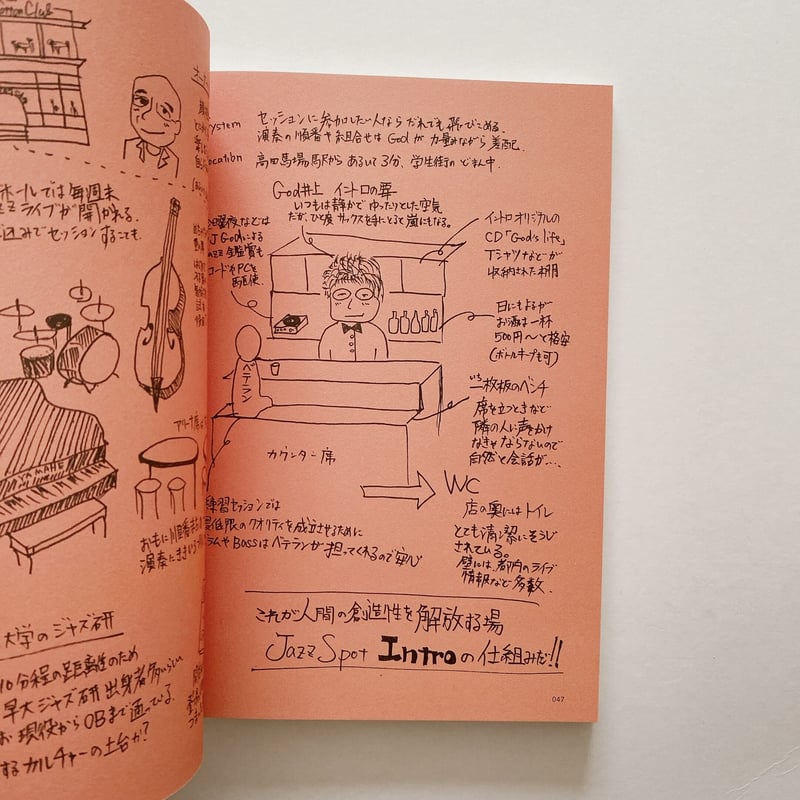 Cotton Club
ホールでは毎週末
ライブが開かれる.
込みでセッションすることも.
YAMAHA
アリーナ席
おもに順番
演奏にききいる
大学のジャズ研
10分程の距離のため
早大ジャズ研出身者多いらしい
現役からOBまで通ってる.
するカルチャーの土台か?
system
セッションに参加したい人ならだれでも飛びこめる.
演奏の順番やお問合せはGodが力量みながら差配.
ocation
高田馬場駅からあるいて3分、学生街のどまん中.
God井上 イントロの要
いつもは静かでゆったりとした空気
だが、ひと度サックスを手にとると嵐にもなる。
曜夜などは
J Godによる
azz鑑賞も
コードやPCを
駆使.
イントロオリジナルの
CD「God's life」
Tシャツなどが
収納された棚
日にもよるが
お酒は一杯
500円〜と格安
(ボトルキープも可)
ベテラン
一枚板のベンチ
いち
席を立つときなど
隣の人に声をかけ
なきゃならないので
自然と会話が….
カウンター席
WC
店の奥にはトイレ
とても清潔にそうじ
されている。
壁には、都内のライブ
情報など多数.
練習セッションでは
最低限のクオリティを成立させるために
ラムやBassはベテランが担ってくれるので安心
これが人間の創造性を解放する場
Jazz Spot Introの仕組みだ!!
047